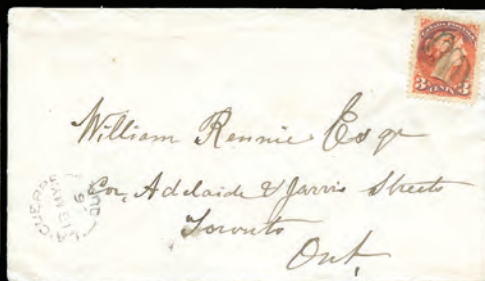 CANADA POSTAGE
3 CENTS 3
William Rennie Esqr
Cor, Adelaide & Jarvis Streets
Toronto
Ont,